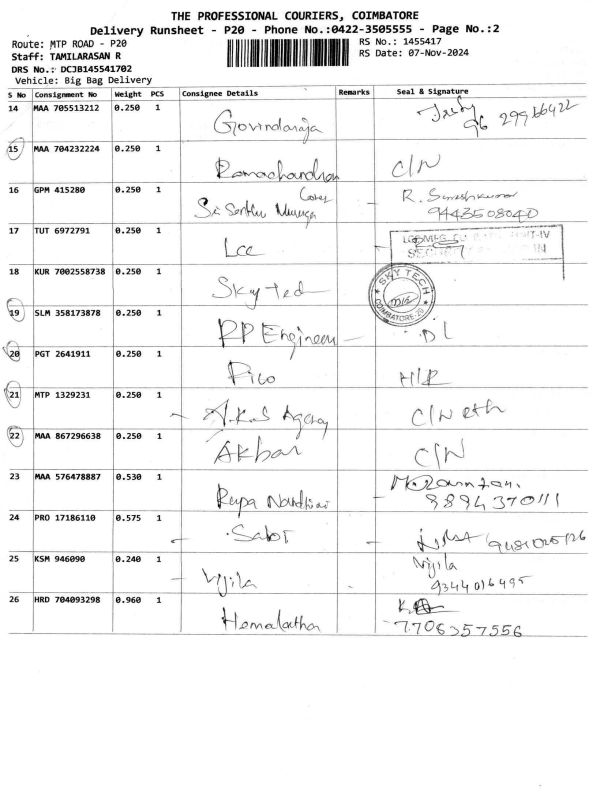 THE PROFESSIONAL COURIERS, COIMBATORE
Delivery Runsheet - P20 - Phone No.:0422-3505555 - Page No.:2
Route: MTP ROAD - P20
RS No.: 1455417
Staff: TAMILARASAN R
RS Date: 07-Nov-2024
DRS No.: DCJB145541702
Vehicle: Big Bag Delivery
S No Consignment No Weight PCS Consignee Details Remarks Seal & Signature
14 MAA 705513212 0.250 1
Govindaraja
15 MAA 704232224 0.250 1
Ramachandran C/N
16 GPM 415280 0.250 1
Sri Senthu Muruga R. Sureshkumar
9443508040
17 TUT 6972791 0.250 1
Lee
18 KUR 7002558738 0.250 1
Sky Ted SKY TECH COIMBATORE-29
19 SLM 358173878 0.250 1
PP Engineer DL
20 PGT 2641911 0.250 1
Pico
21 MTP 1329231 0.250 1
A.K.S Agency C/N
22 MAA 867296638 0.250 1
Akbar C/N
23 MAA 576478887 0.530 1
Rupa Nandhini
8894370111
24 PRO 17186110 0.575 1
Sabi
25 KSM 946090 0.240 1
Vijila Vijila
9344016495
26 HRD 704093298 0.960 1
Hemalatha
7706357556